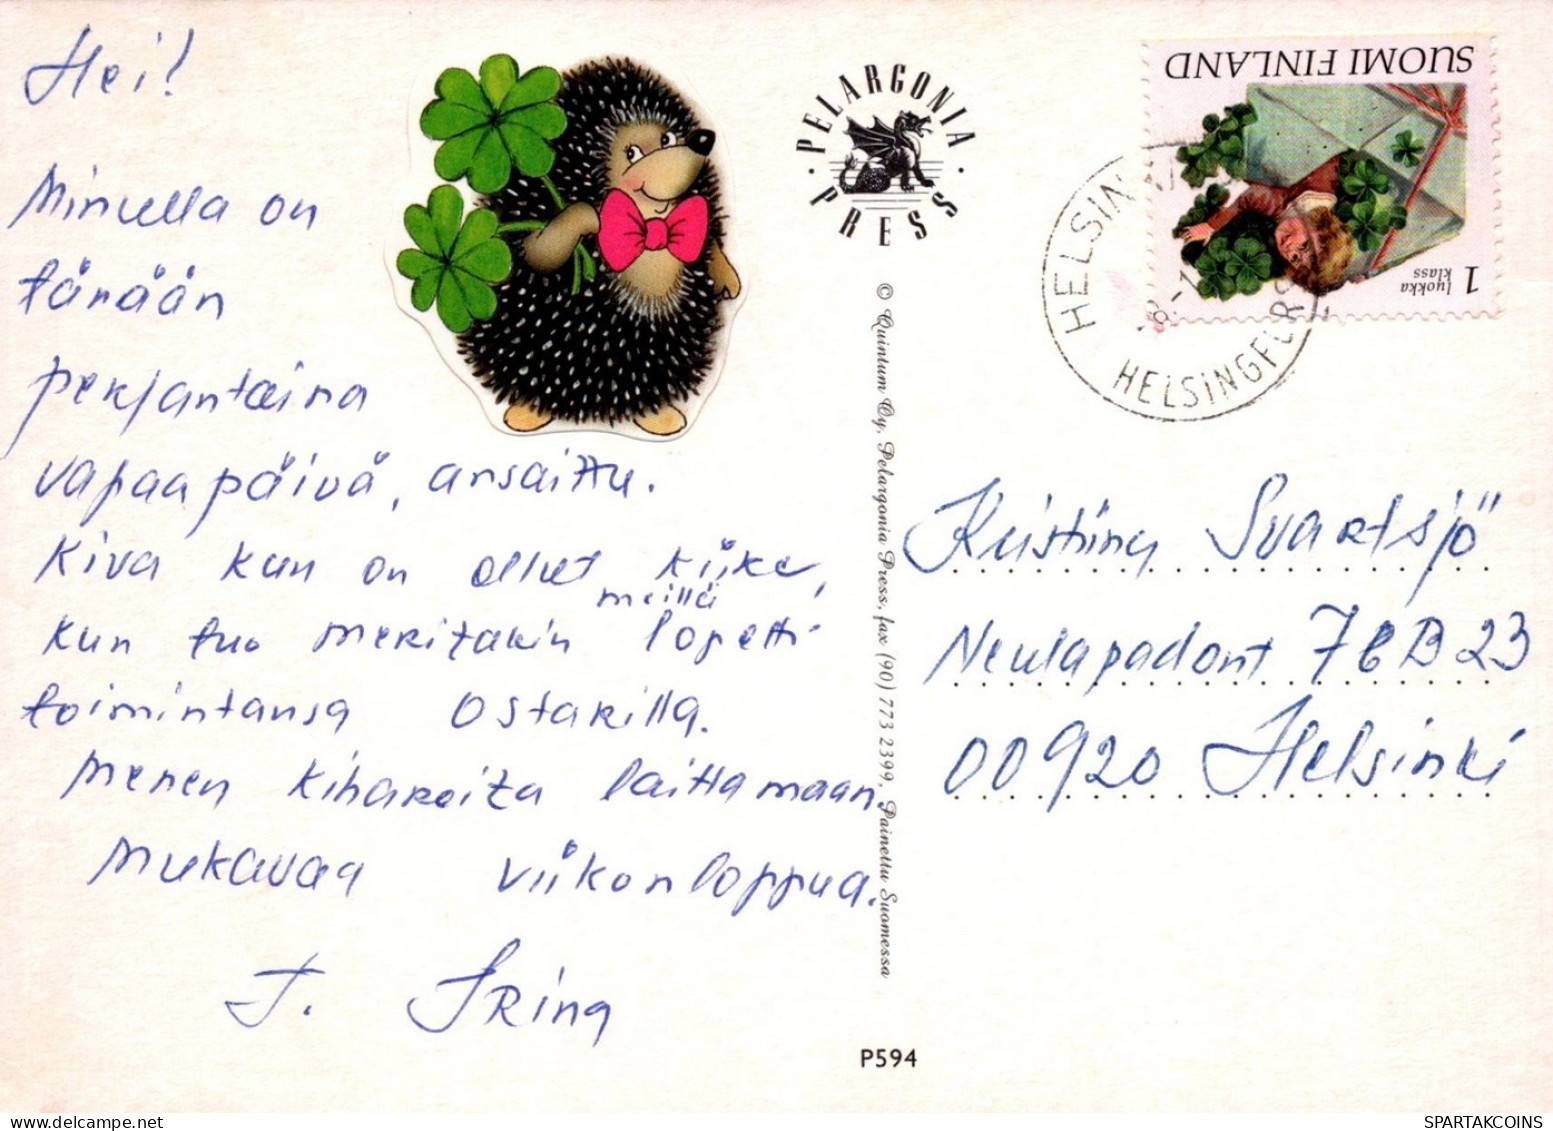 Hei!
Minulla on
tänään
perjantaina
vapaapäivä, ansaittu.
Kiva kun on ollut kiike,
meillä
kun tuo Meritakin lopetti
toimintansa Ostarilla.
Menen kiharoita laittamaan.
Mukavaa viikonloppua.
T. Irina
PELARGONIA
PRESS
© Quintum Oy, Pelargonia Press, fax (90) 773 2399, Painettu Suomessa
P594
SUOMI FINLAND
1 luokka
klass
HELSIN
HELSINGFORS
Kristiina Svartsjö
Neulapadont 7 B 23
00920 Helsinki
SPARTAKCOINS.COM